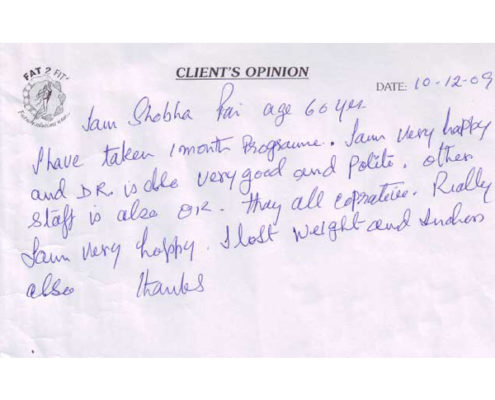 FAT 2 FIT
CLIENT'S OPINION
DATE: 10-12-09
Iam Shobha Rai age 60 yes
I have taken 1 month Programme. Iam very happy
and DR. is also very good and polite, other
staff is also OK. thay all coprative. Really
Iam very happy. I lost weight and Inches
also thanks